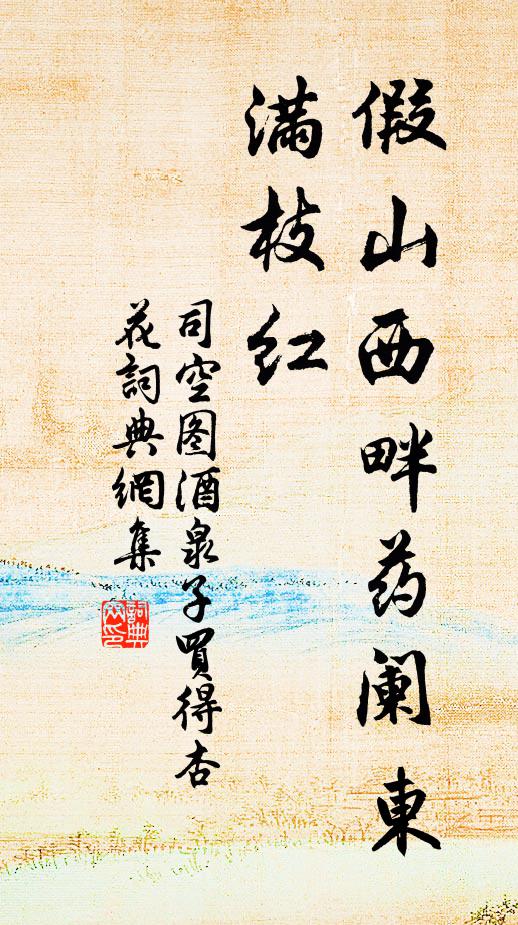 假山西畔药阑東
滿枝红
司空图酒泉子買得杏
花詞典網集
詞典